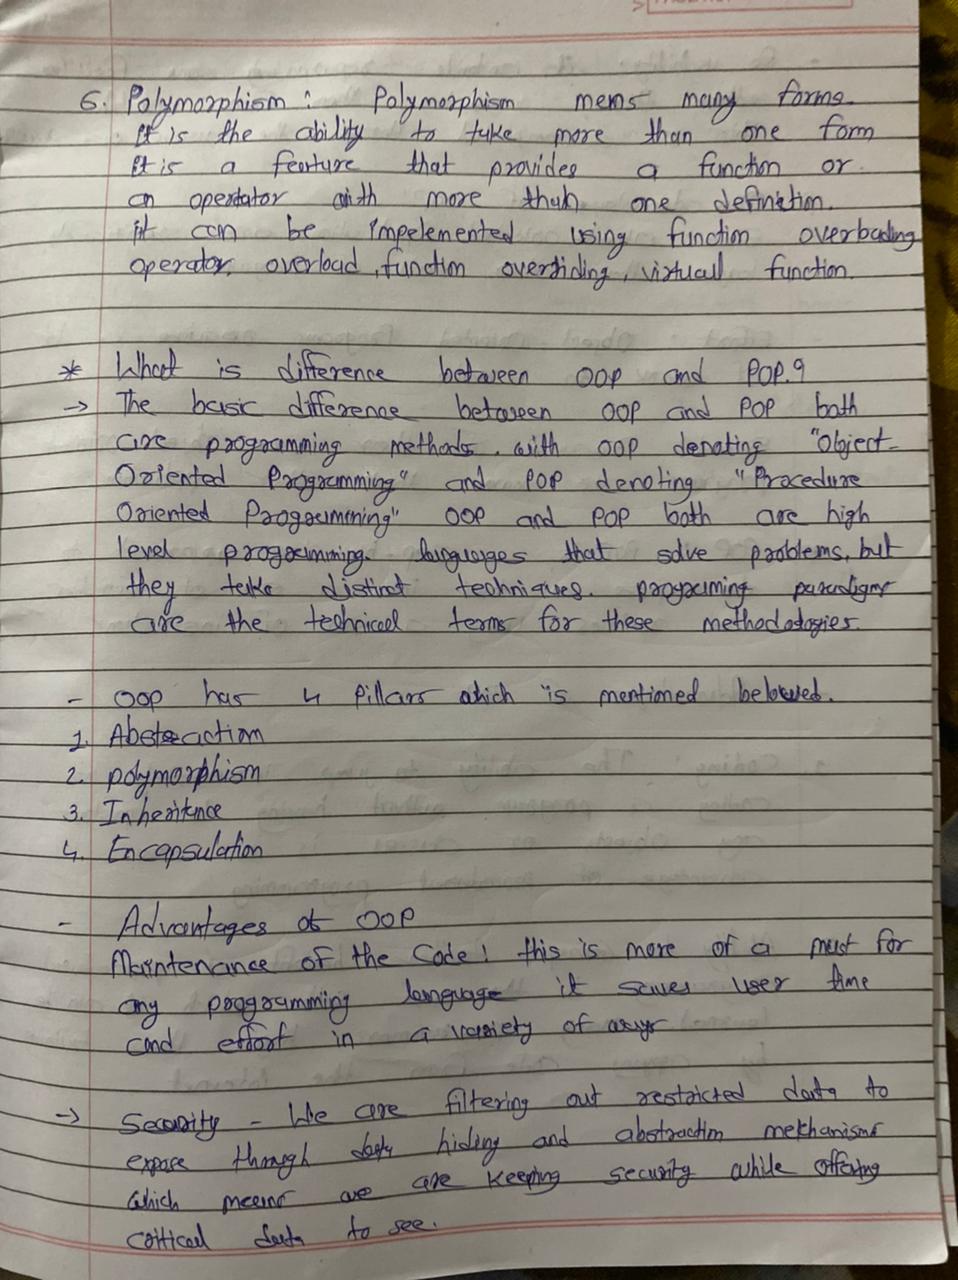 6. Polymorphism : Polymorphism mems many forms.
It is the ability to take more than one form
It is a feature that provides a function or
an opertator with more than one definition.
it can be impelemented using function overloading
operator, overload, function overriding, virtual function.
* What is difference between OOP and POP.?
→ The basic difference between OOP and POP both
are programming methods. with OOP denoting "Object-
Oriented Programming" and POP denoting "Procedure
Oriented Programming" OOP and POP both are high
level programming. languages that solve problems, but
they take distinct techniques. programing paradigms
are the technical terms for these methodologies.
- OOP has 4 Pillars which is mentioned belowed.
1. Abstraction
2. polymorphism
3. Inheritance
4. Encapsulation
- Advantages of OOP
Maintenance of the Code : this is more of a must for
any programming language it saves user time
and effort in a variety of ways
→ Security - We are filtering out restricted data to
expose through data hiding and abstraction mekhanisms
which means we are keeping security while offering
critical data to see.